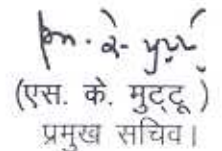 (एस. के. मुट्टू )
प्रमुख सचिव।